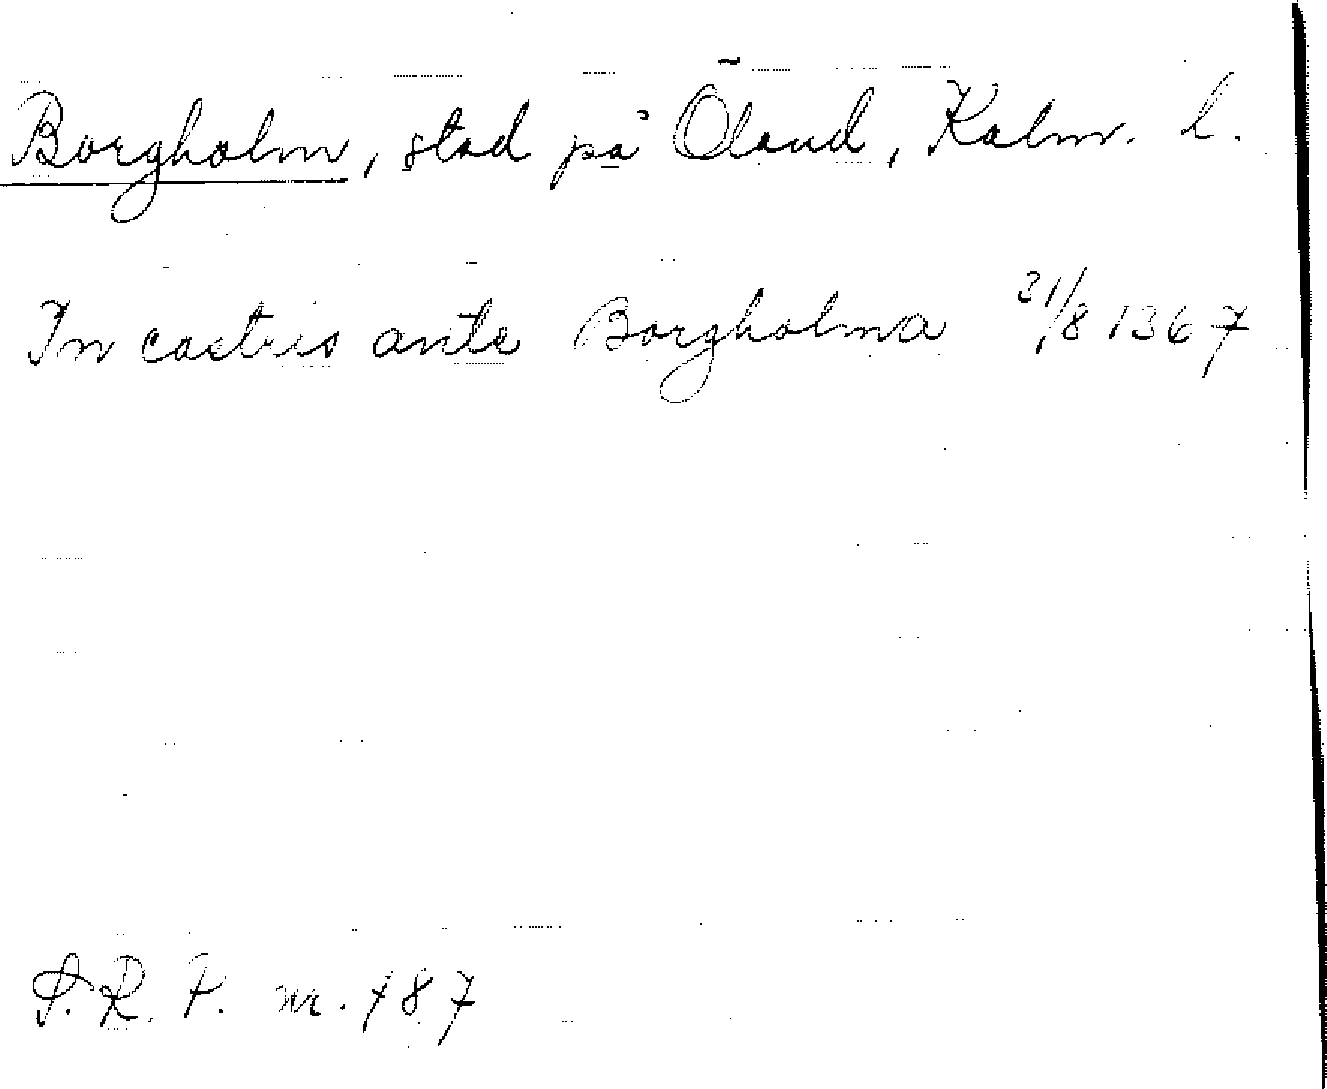 Borgholm, stad på Öland, Kalm. l.
In castris ante Borgholma 31/8 1367
S.R.P. nr. 787